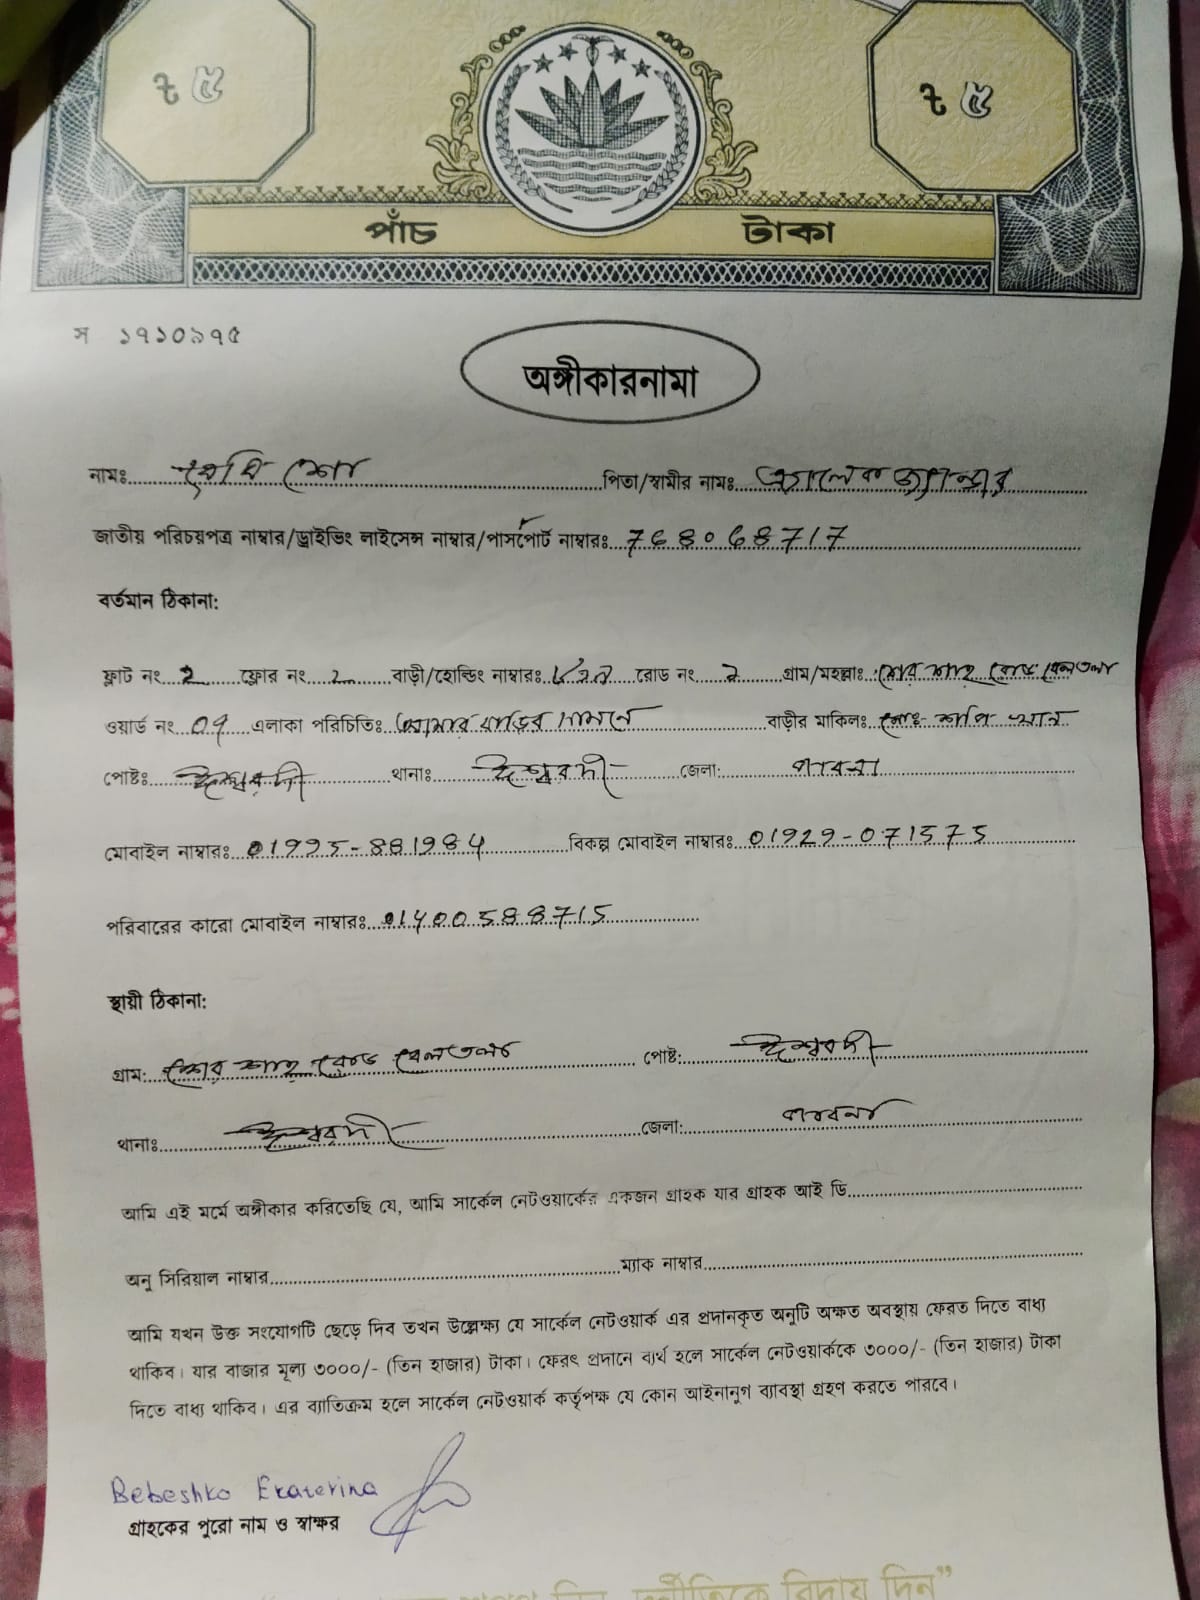 ট ৫ ট ৫
পাঁচ টাকা
স ১৭১০৯৭৫
অঙ্গীকারনামা
নামঃ পিতা/স্বামীর নামঃ
জাতীয় পরিচয়পত্র নাম্বার/ড্রাইভিং লাইসেন্স নাম্বার/পাসপোর্ট নাম্বারঃ 768068717
বর্তমান ঠিকানা:
ফ্লাট নং 2 ফ্লোর নং 2 বাড়ী/হোল্ডিং নাম্বারঃ রোড নং গ্রাম/মহল্লাঃ শের শাহ রোড বেলতলা
ওয়ার্ড নং 07 এলাকা পরিচিতিঃ বাড়ীর মাকিলঃ
পোষ্টঃ ঈশ্বরদী থানাঃ ঈশ্বরদী জেলা: পাবনা
মোবাইল নাম্বারঃ 01995-881984 বিকল্প মোবাইল নাম্বারঃ 01929-071575
পরিবারের কারো মোবাইল নাম্বারঃ 01400588715
স্থায়ী ঠিকানা:
গ্রাম: শের শাহ রোড বেলতলা পোষ্ট: ঈশ্বরদী
থানাঃ ঈশ্বরদী জেলা: পাবনা
আমি এই মর্মে অঙ্গীকার করিতেছি যে, আমি সার্কেল নেটওয়ার্কের একজন গ্রাহক যার গ্রাহক আই ডি
অনু সিরিয়াল নাম্বার ম্যাক নাম্বার
আমি যখন উক্ত সংযোগটি ছেড়ে দিব তখন উল্লেক্ষ্য যে সার্কেল নেটওয়ার্ক এর প্রদানকৃত অনুটি অক্ষত অবস্থায় ফেরত দিতে বাধ্য
থাকিব। যার বাজার মূল্য ৩০০০/- (তিন হাজার) টাকা। ফেরৎ প্রদানে ব্যর্থ হলে সার্কেল নেটওয়ার্ককে ৩০০০/- (তিন হাজার) টাকা
দিতে বাধ্য থাকিব। এর ব্যাতিক্রম হলে সার্কেল নেটওয়ার্ক কর্তৃপক্ষ যে কোন আইনানুগ ব্যাবস্থা গ্রহণ করতে পারবে।
Bebeshko Ekaterina
গ্রাহকের পুরো নাম ও স্বাক্ষর
দুর্নীতিকে বিদায় দিন”